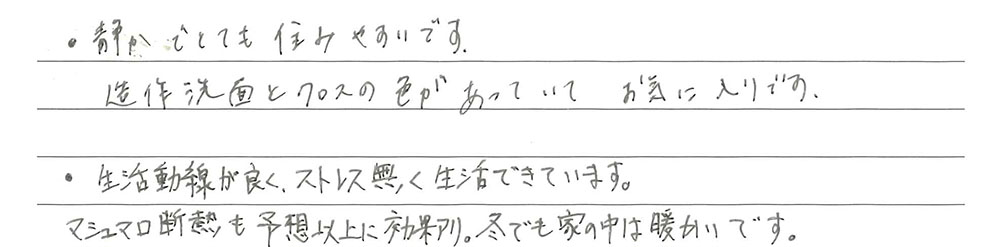 ・静かでとても住みやすいです.
造作洗面とクロスの色があっていて お気に入りです.
・生活動線が良く、ストレス無く生活できています。
マシュマロ断熱も予想以上に効果アリ。冬でも家の中は暖かいです。